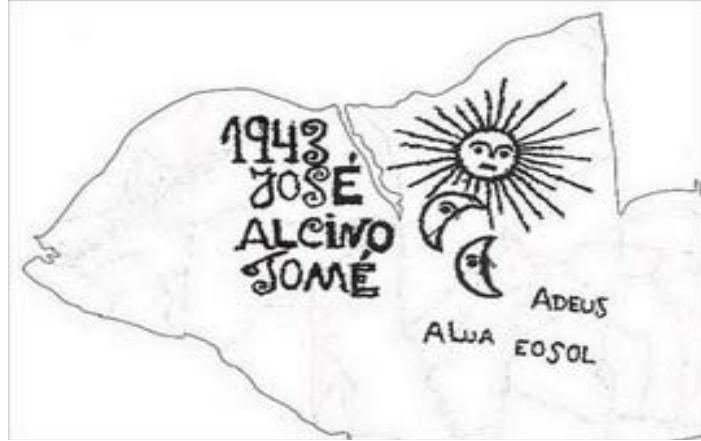 1943
JOSÉ
ALCINO
TOMÉ
ADEUS
A LUA EOSOL